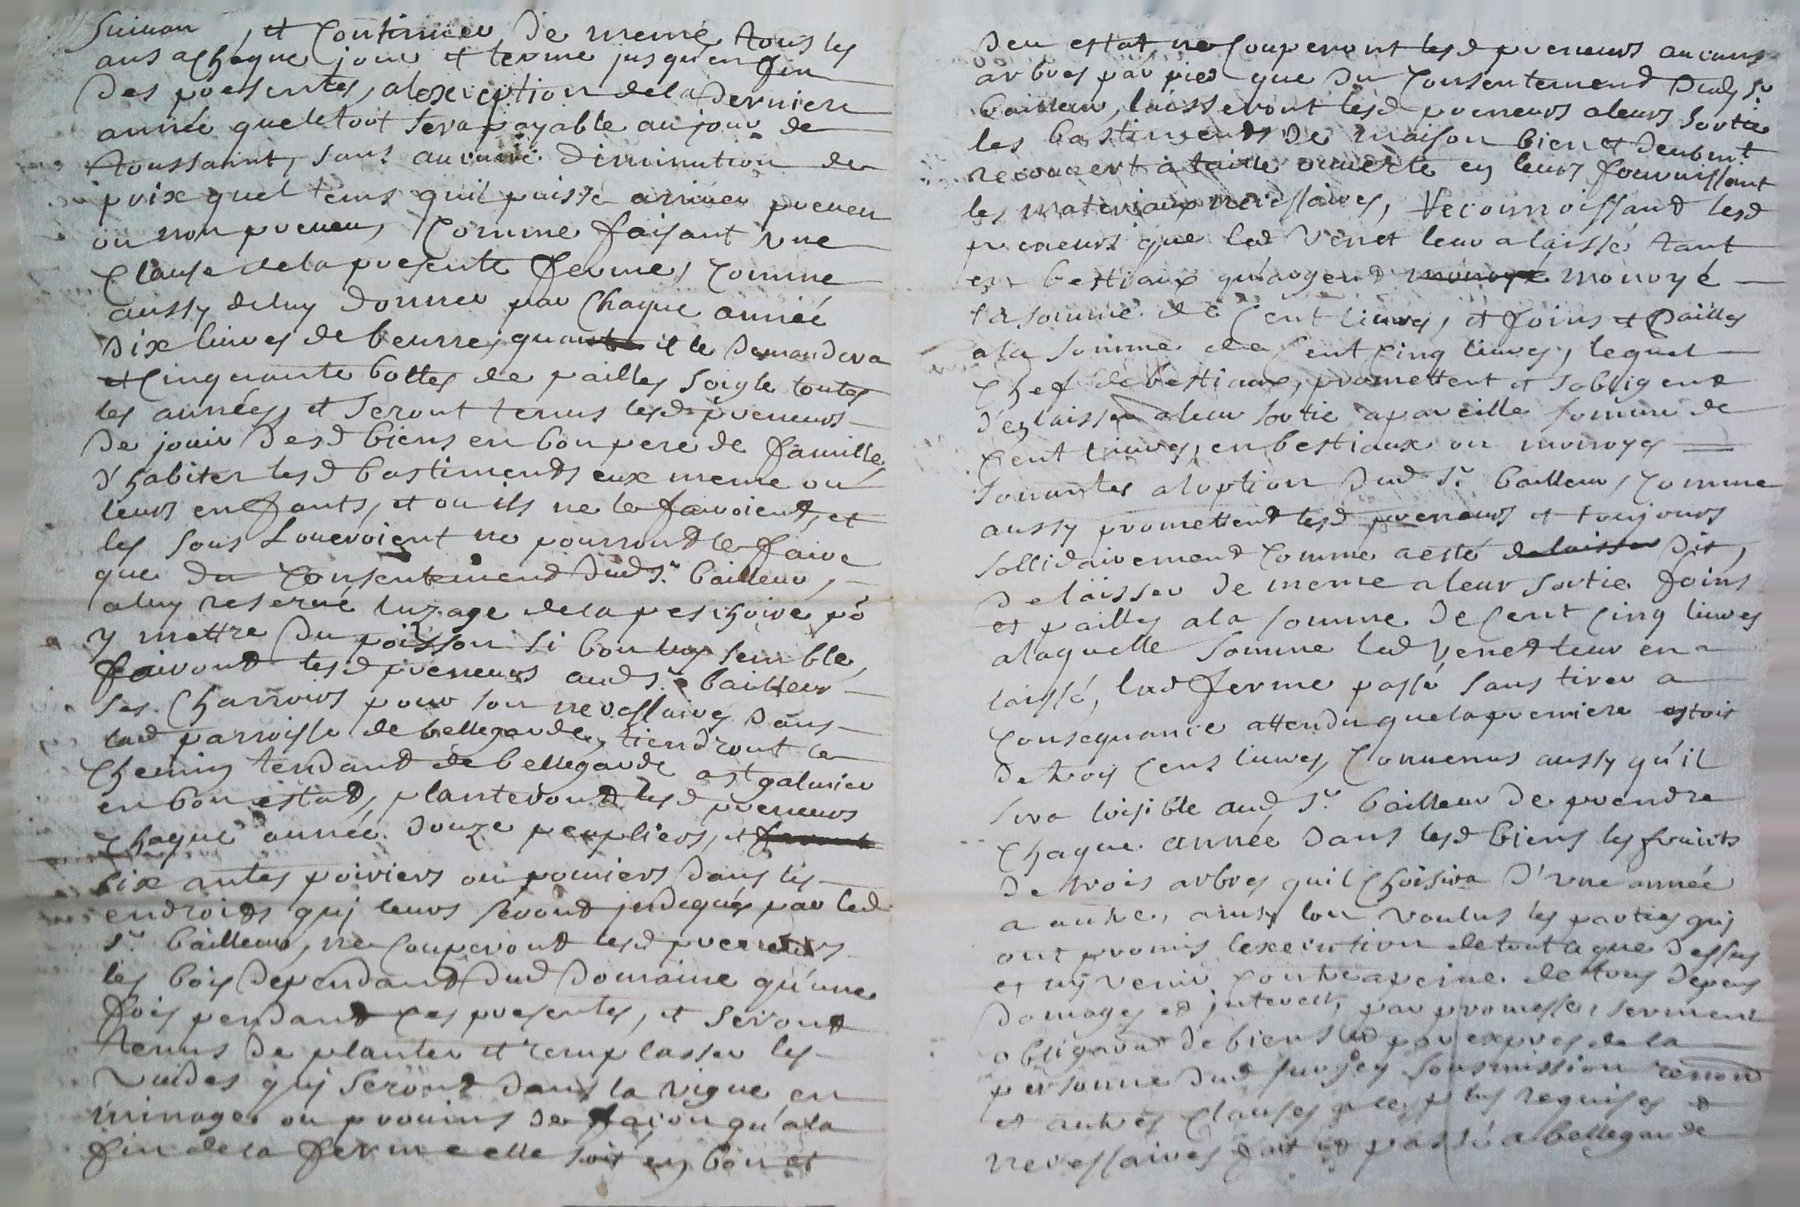 Suivan, et Continuer de meme tous les
ans a Chaque jour et terme jusqu'en fin
Des presentes, alexception dela Derniere
année queletout sera payable au jour de
toussaint, sans aucune diminution de
prix quel tems quil puisse arriver preveu
ou non preveu, Comme faisant une
Clause dela presente ferme, Comme
aussy deluy donner par Chaque année
Dix livres de beurre, quant il le Demandera
et Cinquante bottes de pailles soigle toutes
les années, et seront tenus lesd preneurs
De jouir Desd biens en bon pere de famille,
d'habiter lesd bastiments eux meme ou
leurs enfants, et ou ils ne le fairoient, et
les sous Loueroient ne pourront le faire
que du Consentement dud sr bailleur,
aluy reservé luzage dela peschoire po
y mettre Du poisson si bon luy semble,
fairont lesd preneurs aud sr bailleur
ses Charrois pour son necessaires dans
lad parroisse de bellegarde, tiendront le
Chemin tendant de bellegarde a st galmier
en bon estat, planteront lesd preneurs
Chaque année douze peupliers, et
six antes poiriers ou pomiers dans les
endroits qui leurs seront jndiqués par led
sr bailleur, ne Couperont lesd preneurs
les bois dependant dud Domaine qu'une
fois pendant Ces presentes, et seront
tenus de planter et remplasser les
vuides qui seront dans la vigne en
minages ou provins de façon qu'ala
fin dela ferme elle soit en bon et
deu estat, ne Couperont lesd preneurs aucuns
arbres par pied que du Consentement Dud sr
bailleur, laisseront lesd preneurs aleurs sortie
les bastiments de maison bien et deubmt
recouvert a taille ouverte en leurs fournissant
les materiaux necessaires, Reconnoissant lesd
preneurs que led Venet leur a laissé tant
en bestiaux qu'argent monoyé
la somme de Cent livres, et foins et Pailles
ala somme de Cent Cinq livres, lequel
Chef de bestiaux, promettent et sobligent
d'en laisser aleur sortie apareille somme de
Cent livres, en bestiaux ou monoyes
sonantes aloption Dud sr bailleur, Comme
aussy promettent lesd preneurs et toujours
sollidairement Comme a esté dit,
De laisser de meme aleur sortie foins
et pailles ala somme De Cent Cinq livres
alaquelle somme led Venet leur en a
laissé, lad ferme passé sans tirer a
Consequance attendu quela premiere estoit
de trois Cens livres, Convenus aussy qu'il
sera loisible aud sr bailleur de prendre
Chaque année dans lesd biens les fruits
de trois arbres quil Choisira D'une année
a autre, ainsy lon voulus les parties qui
ont promis lexecution detout ceque Dessus
et ny venir Contre apeine de tous depens
domages et jnterest, par promesse, serment
obligaon de biens et par expres de la
personne dud furgey soumission renon
et autres Clauses ples plus requises et
necessaires fait et passé a bellegarde